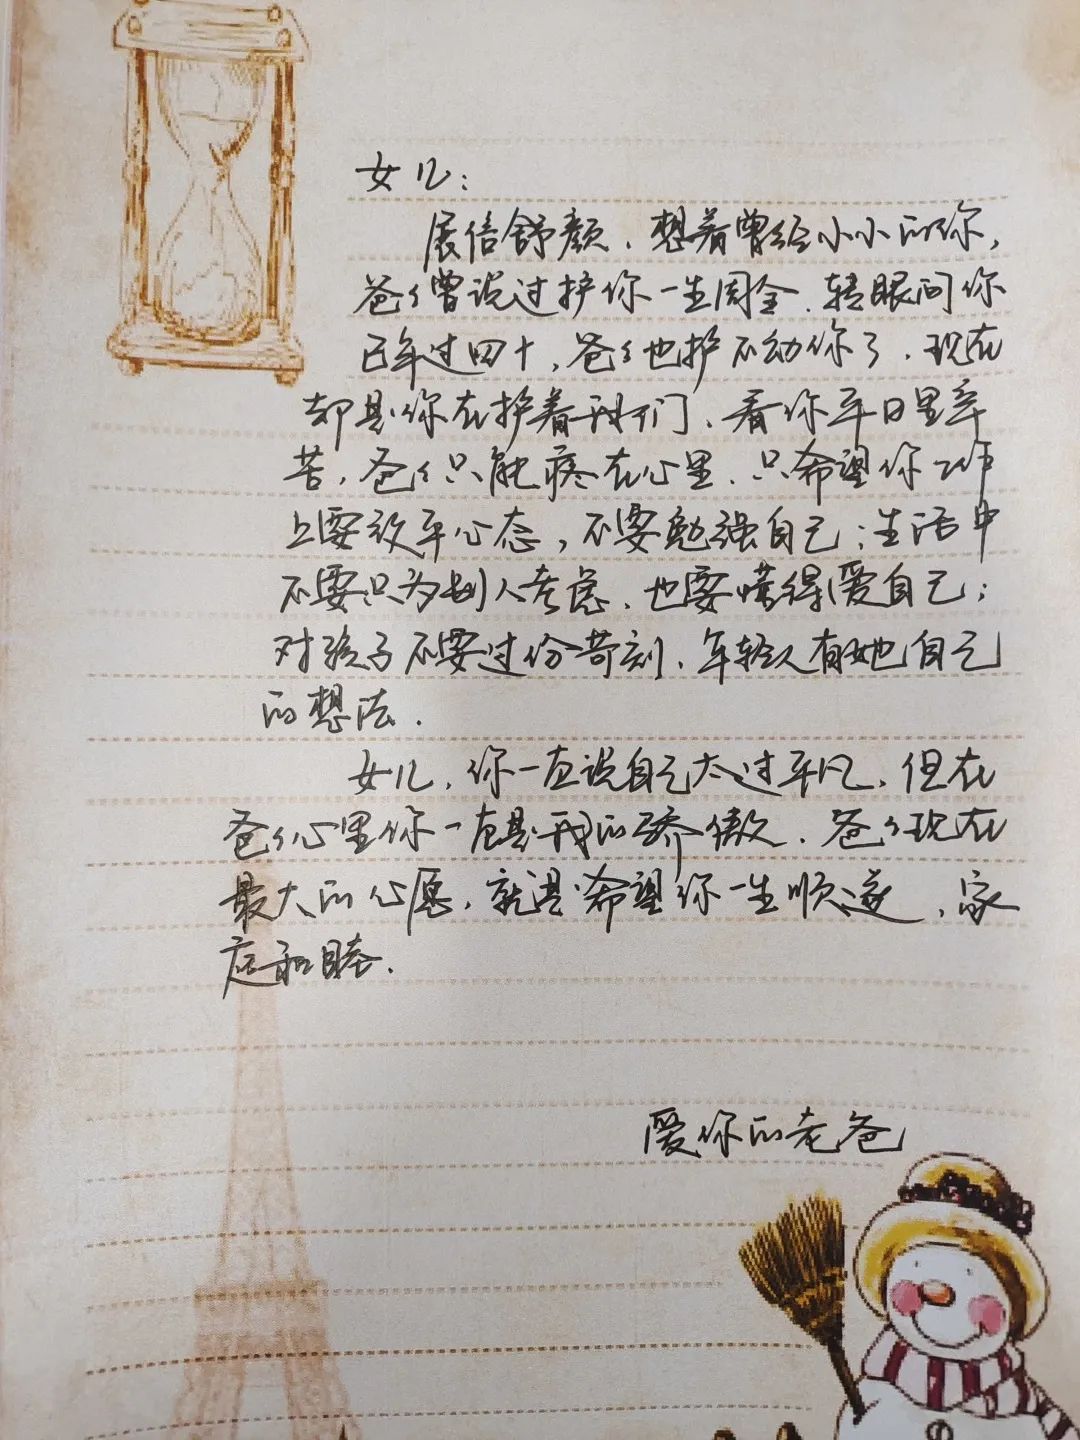 女儿：
展信舒颜．想着曾经小小的你，
爸爸曾说过护你一生周全．转眼间你
已年过四十，爸爸也护不动你了．现在
却是你在护着我们、看你平日里辛
苦，爸爸只能疼在心里．只希望你工作
上要放平心态，不要勉强自己；生活中
不要只为别人考虑．也要懂得爱自己；
对孩子不要过份苛刻．年轻人有她自己
的想法．
女儿，你一直说自己太过平凡，但在
爸爸心里你一直是我的骄傲．爸爸现在
最大的心愿，就是希望你一生顺遂、家
庭和睦．
爱你的老爸